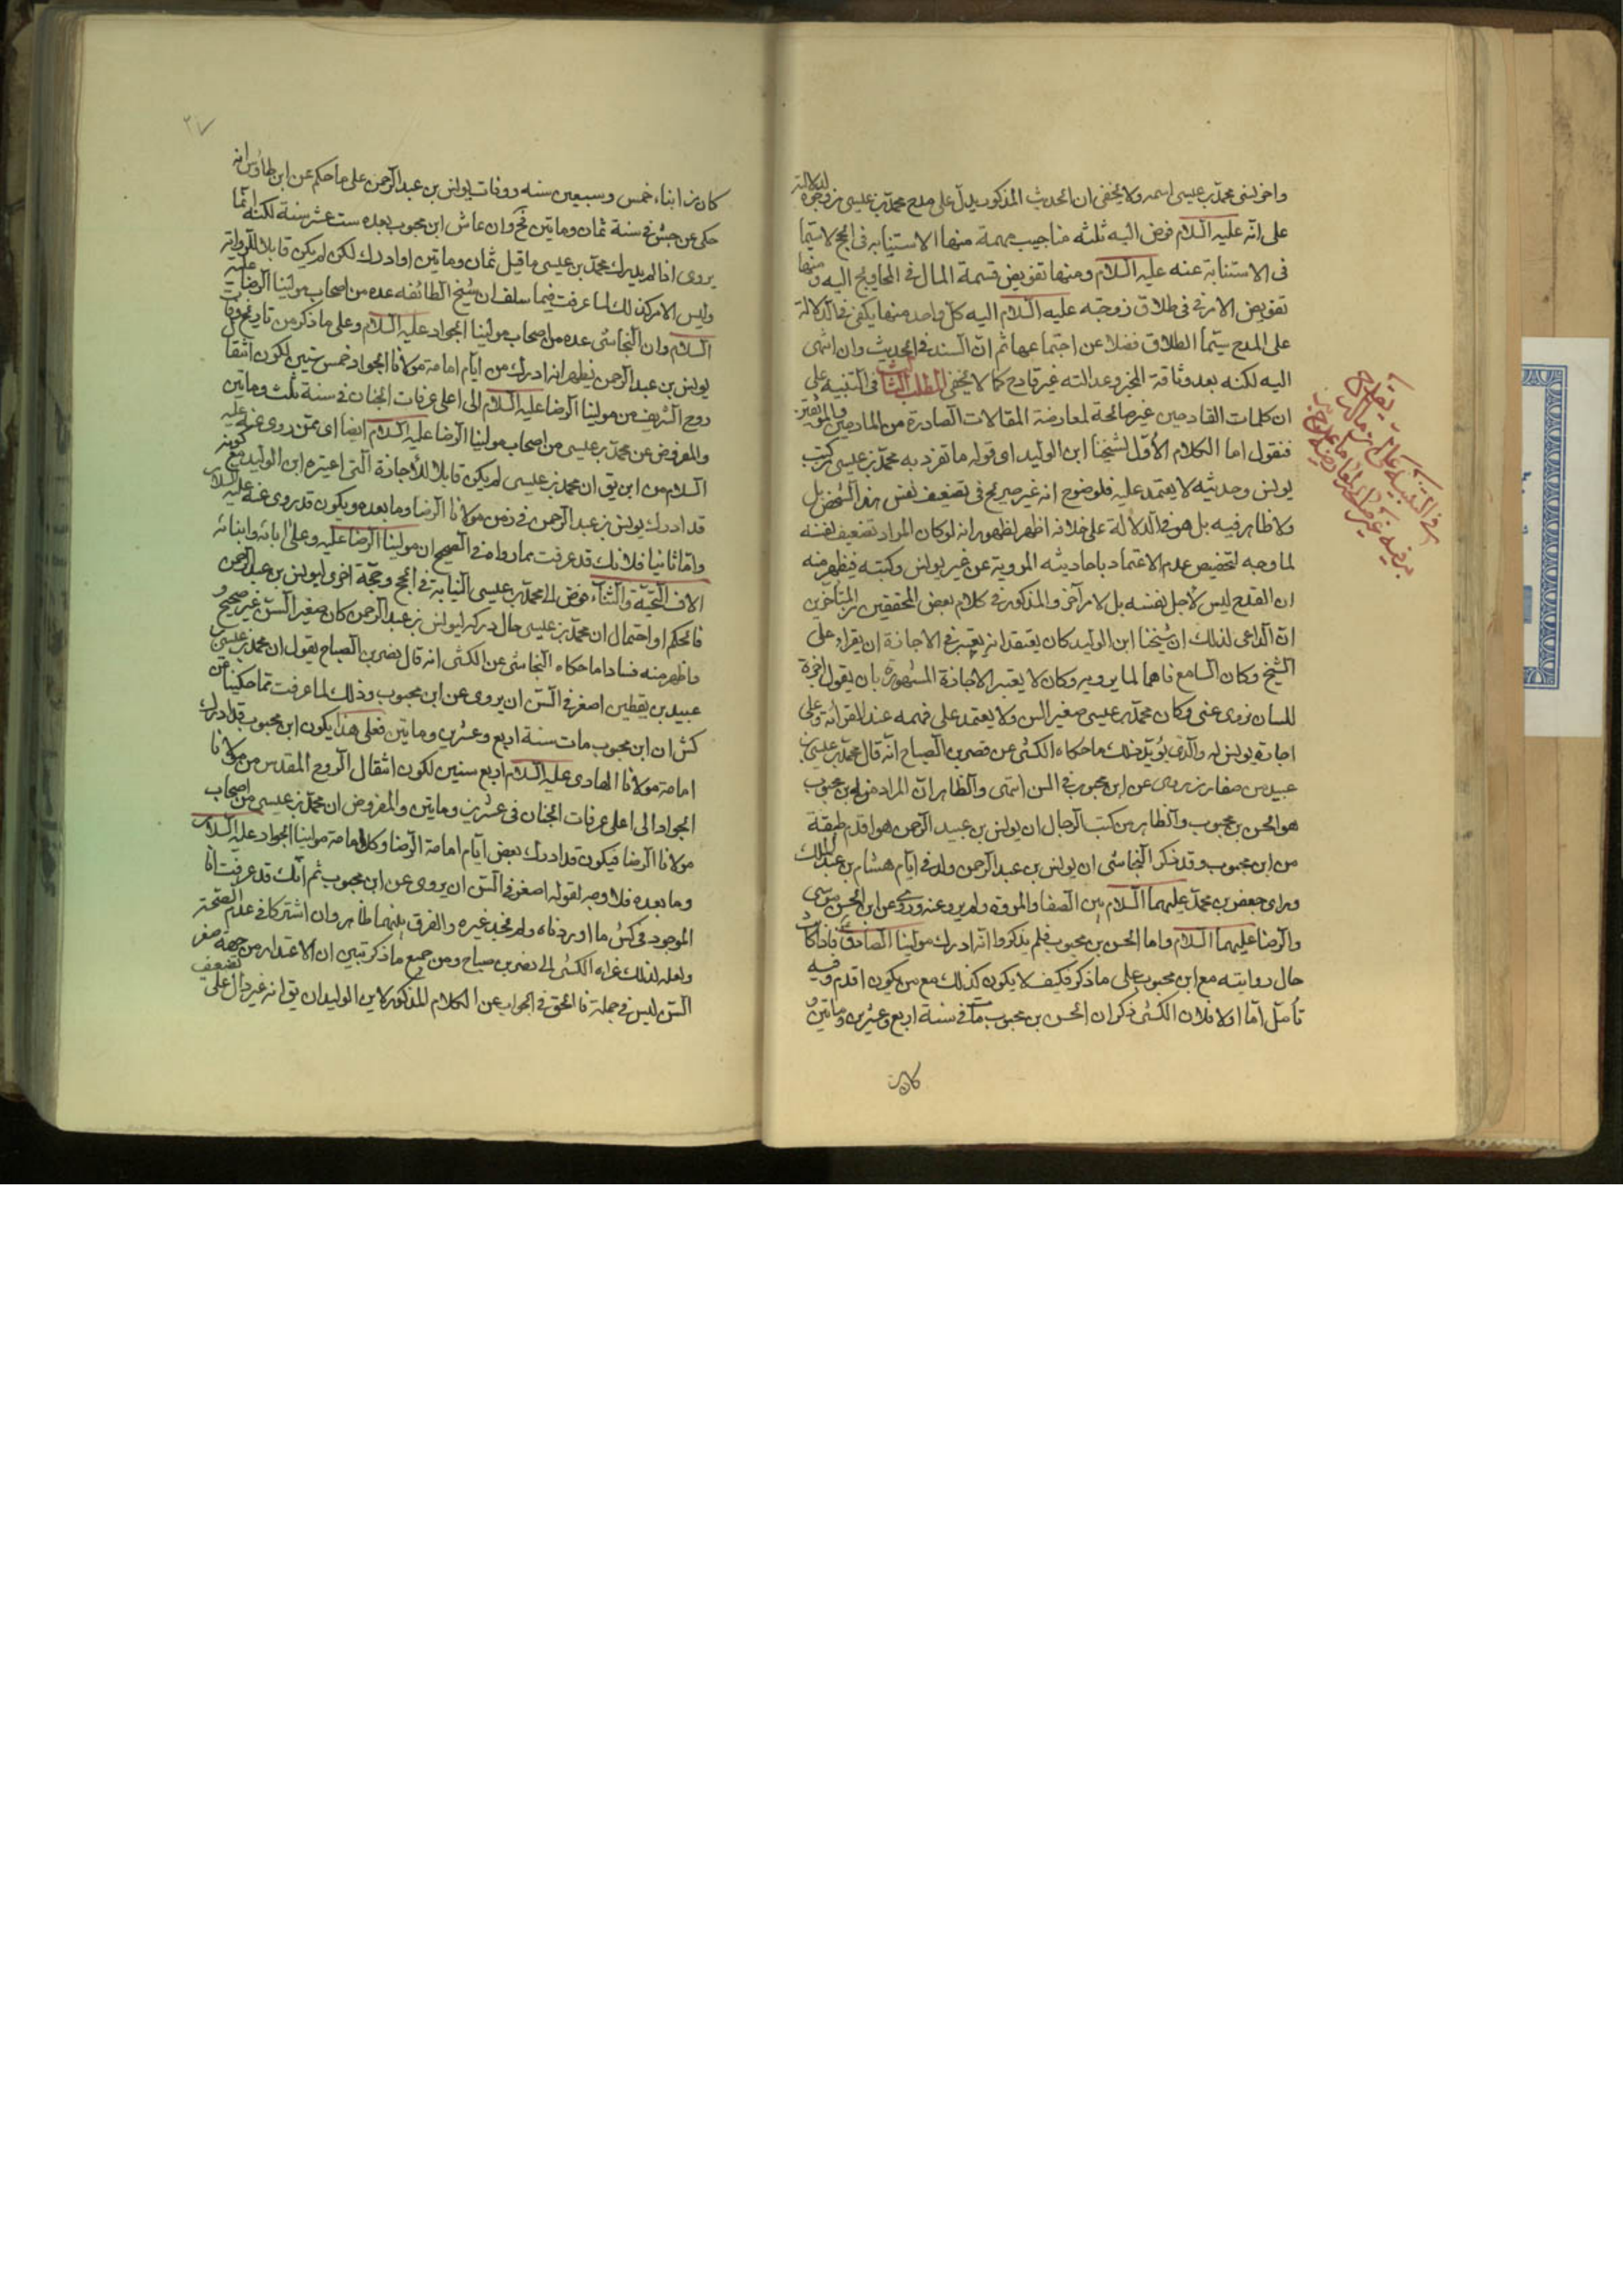 واخر لفى محمد بن عيسى اسمه ولا يخفى ان الحديث المذكور يدل على مدح محمد بن عيسى من وجوه لدلالته
على انه عليه السلام فوض اليه ثلثه مناجيب مهمة منها الاستنابه فى الحج لاسيما
فى الاستنابة عنه عليه السلام ومنها تفويض قسمة المال فى المحاويج اليه ومنها
تفويض الامر فى طلاق زوجته عليه السلام اليه كل واحد منها يكفى فى الدلالة
على المدح سيما الطلاق فضلا عن اجتماعها ثم ان السند فى الحديث وان انتهى
اليه لكنه بعد وثاقة المخبر وعدالته غير قادح كما لا يخفى المطلب الثالث فى التنبيه على
ان كلمات القادحين غير صالحة لمعارضة المقالات الصادرة من المادحين والموثقين
فنقول اما الكلام الأول لشيخنا ابن الوليد اى قوله ما تفرد به محمد بن عيسى من كتب
يونس وحديثه لا يعتمد عليه فلوضوح انه غير صريح فى تضعيف نفس هذا الشخص بل
ولا ظاهر فيه بل هو فى الدلالة على خلافه اظهر لظهور انه لو كان المراد تضعيف نفسه
لما وجه لتخصيص عدم الاعتماد باحاديثه المروية عن غير يونس وكتبه فيظهر منه
ان القدح ليس لأجل نفسه بل لامر آخر والمذكور فى كلام بعض المحققين من المتأخرين
ان الداعى لذلك ان شيخنا ابن الوليد كان يعتقد انه يعتبر فى الاجازة ان يقراء على
الشيخ وكان السامع فاهما لما يرويه وكان لا يعتبر الاجازة المشهورة بان يقول اجزت
لك ان تروى عنى وكان محمد بن عيسى صغير السن ولا يعتمد على فهمه عند القرائة وعلى
اجازة يونس له والذى يؤيد ذلك ما حكاه الكشى عن نصر بن الصباح انه قال محمد بن عيسى بن
عبيد من صغار من يروى عن ابن محبوب فى السن انتهى والظاهر ان المراد من ابن محبوب
هو الحسن بن محبوب والظاهر من كتب الرجال ان يونس بن عبد الرحمن هو اقدم طبقة
من ابن محبوب وقد ذكر النجاشى ان يونس بن عبد الرحمن ولد فى ايام هشام بن عبد الملك
وراى جعفر بن محمد عليهما السلام بين الصفا والمروة ولم يرو عنه وروى عن ابى الحسن موسى
والرضا عليهما السلام واما الحسن بن محبوب فلم يذكروا انه ادرك مولينا الصادق ع فاذا كان
حال روايته مع ابن محبوب على ما ذكر فكيف لا يكون كذلك مع من يكون اقدم وفيه
تأمل اما اولا فلان الكشى ذكر ان الحسن بن محبوب مات فى سنة اربع وعشرين ومأتين و
كان من
فى التنبيه على ان
٢٧
كان من ابناء خمس وسبعين سنه ووفات يونس بن عبد الرحمن على ما حكم عن ابن طاوس انه
حكى عن جش فى سنة ثمان ومأتين فح وان عاش ابن محبوب بعده ست عشر سنة لكنه انما
يروى اذا لم يدرك محمد بن عيسى ما قبل ثمان ومأتين او ادرك لكن لم يكن قابلا للرواية
وليس الامر كذلك لما عرفت فيما سلف ان شيخ الطائفه عده من اصحاب مولينا الرضا عليه
السلام وان النجاشى عده من اصحاب مولينا الجواد عليه السلام وعلى ما ذكر من تاريخ وفات
يونس بن عبد الرحمن يظهر انه ادرك من ايام امامة مولانا الجواد خمس سنين لكون انتقال
روح الشريف من مولينا الرضا عليه السلام الى اعلى غرفات الجنان فى سنة ثلث ومأتين
والمفروض عن محمد بن عيسى من اصحاب مولينا الرضا عليه السلام ايضا اى ممن روى عنه عليه
السلام من اين يق ان محمد بن عيسى لم يكن قابلا للأجازة التى اعتبره ابن الوليد مع كونه
قد ادرك يونس بن عبد الرحمن فى زمن مولانا الرضا وما بعده ويكون قد روى عنه عليه السلام
واما ثانيا فلانك قد عرفت بما رواه فى الصحيح ان مولينا الرضا عليه وعلى ابائه وابنائه
الاف التحية والثناء فوض الى محمد بن عيسى النيابة فى الحج وحجة اخرى ليونس بن عبد الرحمن
فالحكم او احتمال ان محمد بن عيسى حال دركه ليونس بن عبد الرحمن كان صغير السن غير صحيح و
واظهر منه فسادا ما حكاه النجاشى عن الكشى انه قال نصر بن الصباح يقول ان محمد بن عيسى بن
عبيد بن يقطين اصغر فى السن ان يروى عن ابن محبوب وذلك لما عرفت مما حكينا عن
كش ان ابن محبوب مات سنة اربع وعشرين ومأتين فعلى هذا يكون ابن محبوب قد ادرك
امامة مولانا الهادى عليه السلام اربع سنين لكون انتقال الروح المقدس من مولانا
الجواد الى اعلى غرفات الجنان فى عشرين ومأتين والمفروض ان محمد بن عيسى من اصحاب
مولانا الرضا فيكون قد ادرك بعض ايام امامة الرضا وكل امامة مولينا الجواد عليه السلام
وما بعده فلا وجه لقوله اصغر فى السن ان يروى عن ابن محبوب ثم انك قد عرفت ان
الموجود فى كش ما اوردناه ولم نجد غيره والفرق بينهما ظاهر وان اشتركا فى عدم الصحة
ولعله لذلك عزاه الكشى الى نصر بن صباح ومن جميع ما ذكر تبين ان الاعتذار من جهة صغر
السن ليس فى جملة فالحق فى الجواب عن الكلام المذكور لابن الوليد ان يق انه غير دال على تضعيف